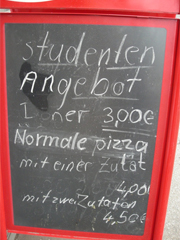 studenten
Angebot
Döner 3,00€
Normale pizza
mit einer Zutat
4,00€
mit zwei Zutaten
4,50€